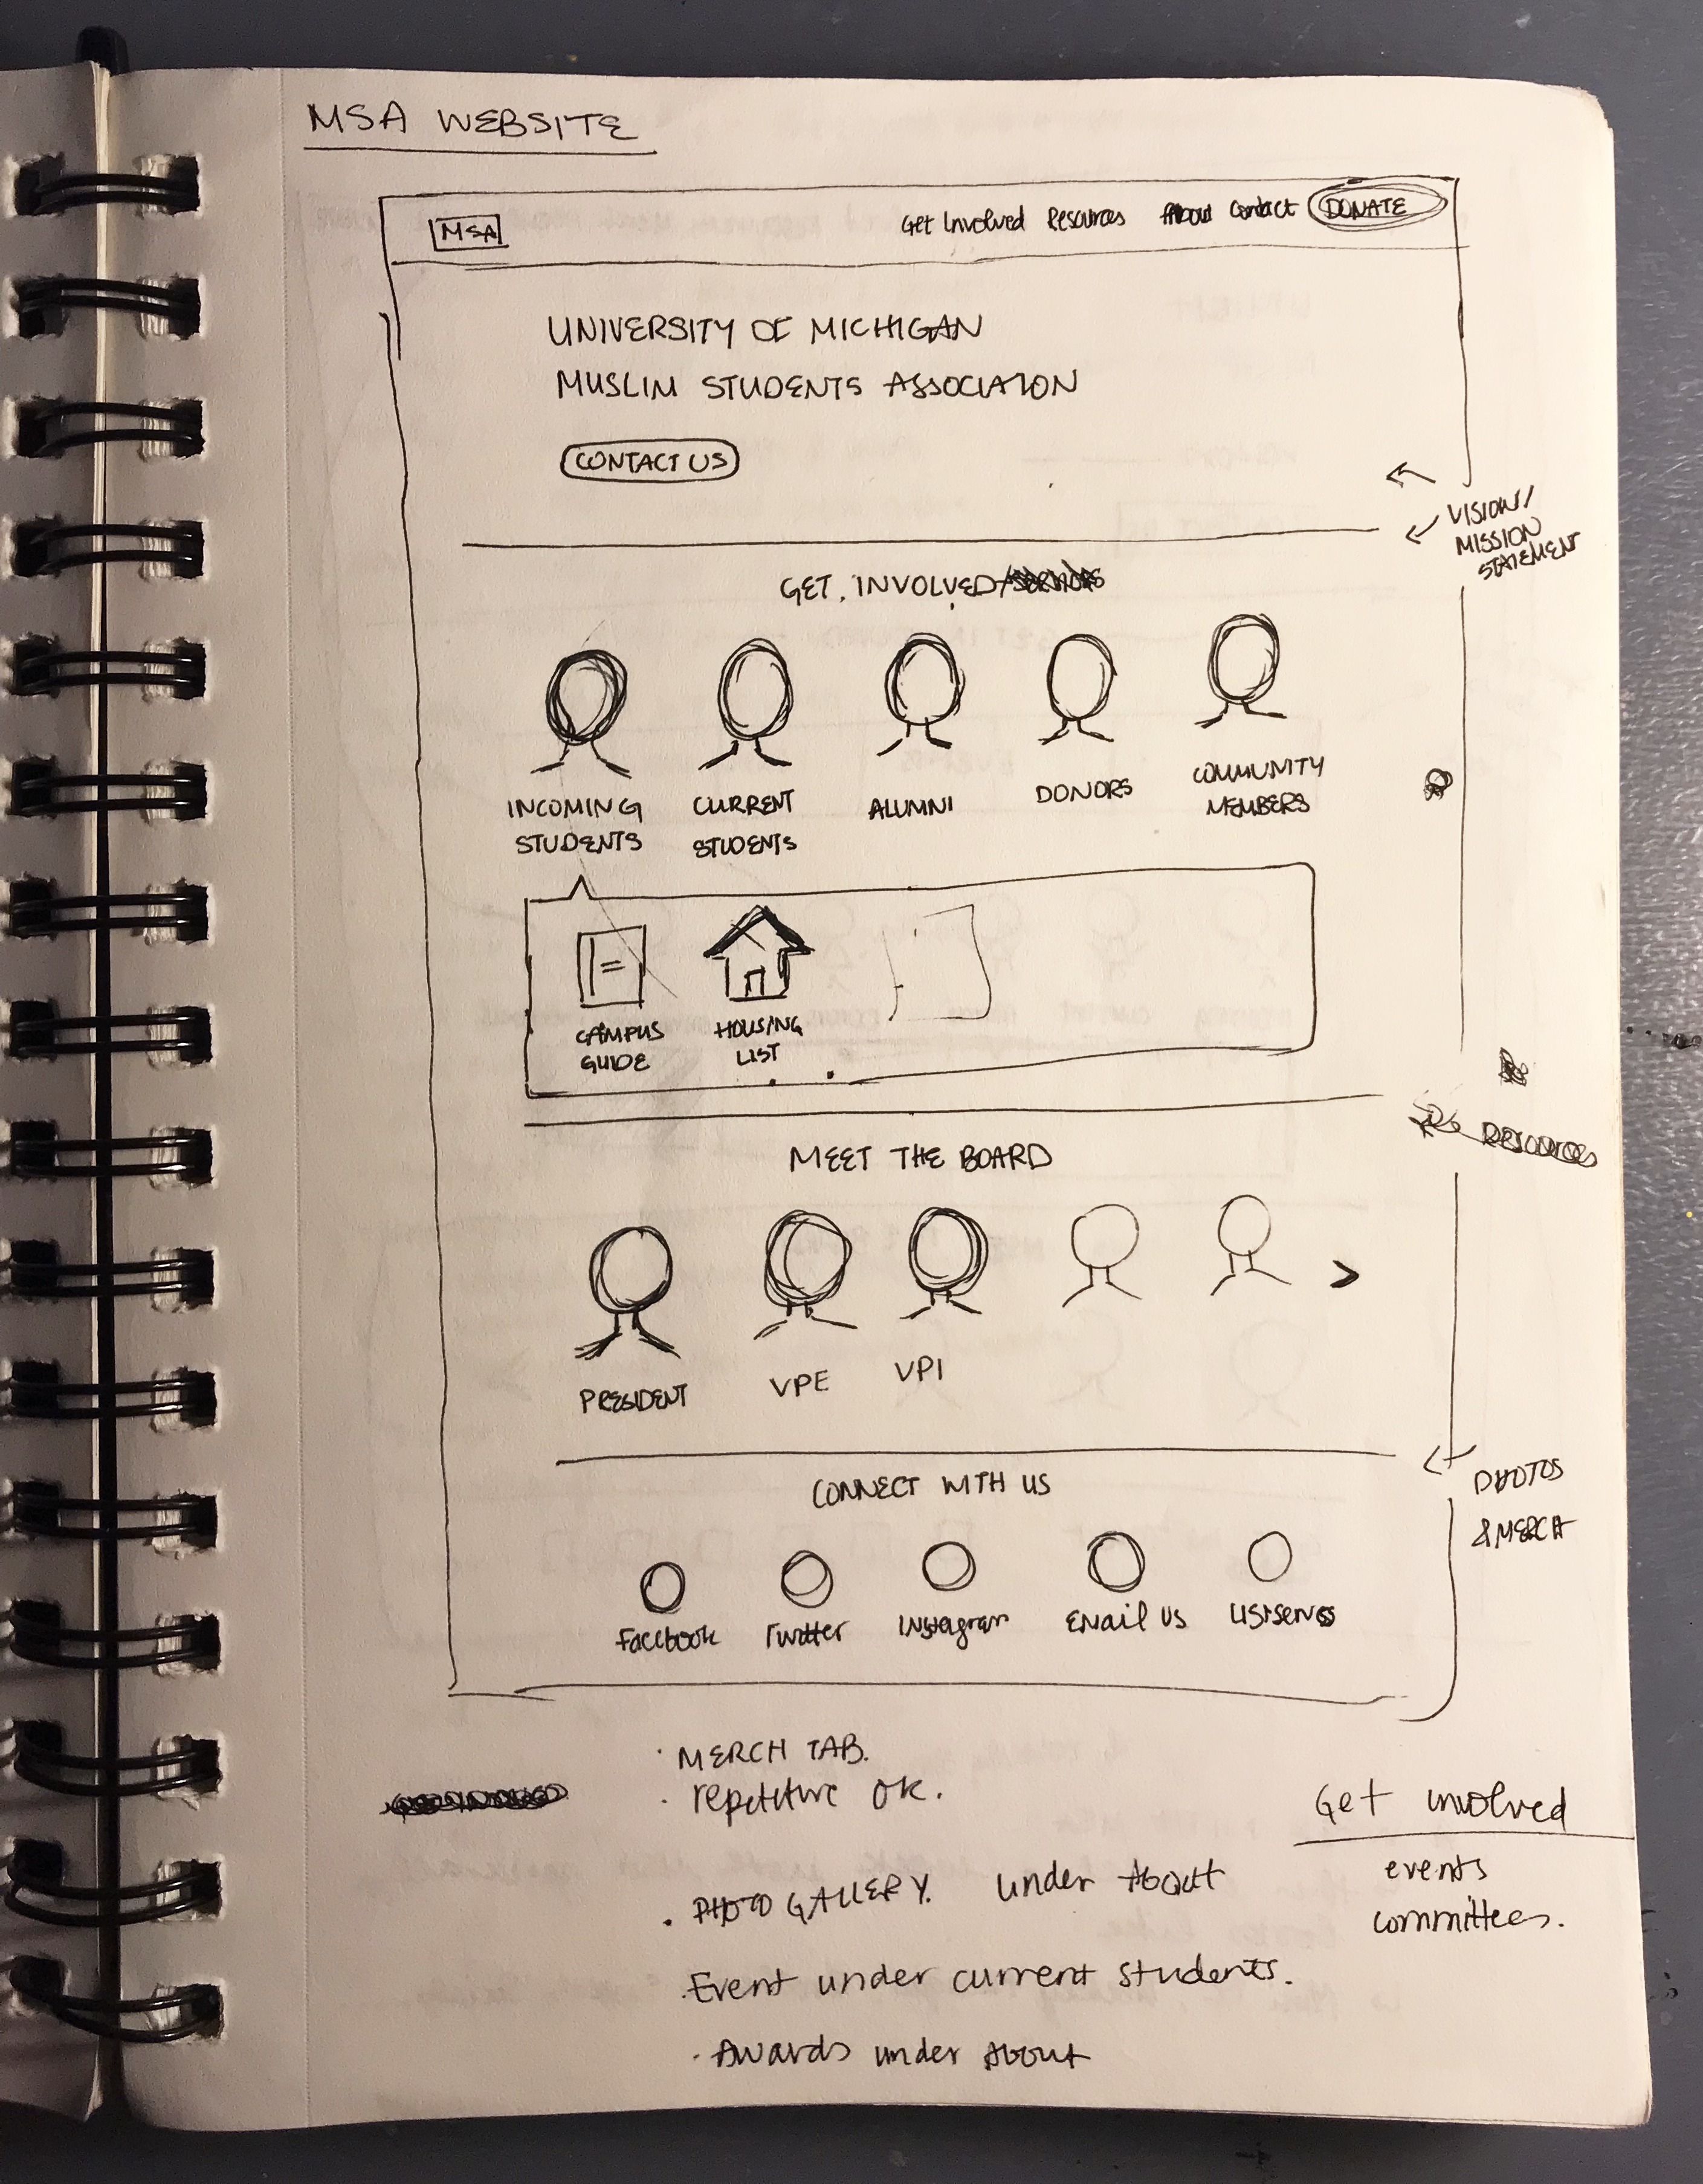 MSA WEBSITE
MSA
Get Involved Resources About Contact DONATE
UNIVERSITY OF MICHIGAN
MUSLIM STUDENTS ASSOCIATON
CONTACT US
VISION/
MISSION
STATEMENT
GET INVOLVED
INCOMING
STUDENTS
CURRENT
STUDENTS
ALUMNI
DONORS
COMMUNITY
MEMBERS
CAMPUS
GUIDE
HOUSING
LIST
RESOURCES
MEET THE BOARD
>
PRESIDENT
VPE
VPI
CONNECT WITH US
PHOTOS
& MERCH
Facebook
Twitter
Instagram
Email us
Listservs
· MERCH TAB.
· repetitive ok.
· PHOTO GALLERY. under About
· Event under current students.
· Awards under About
Get involved
events
committees.